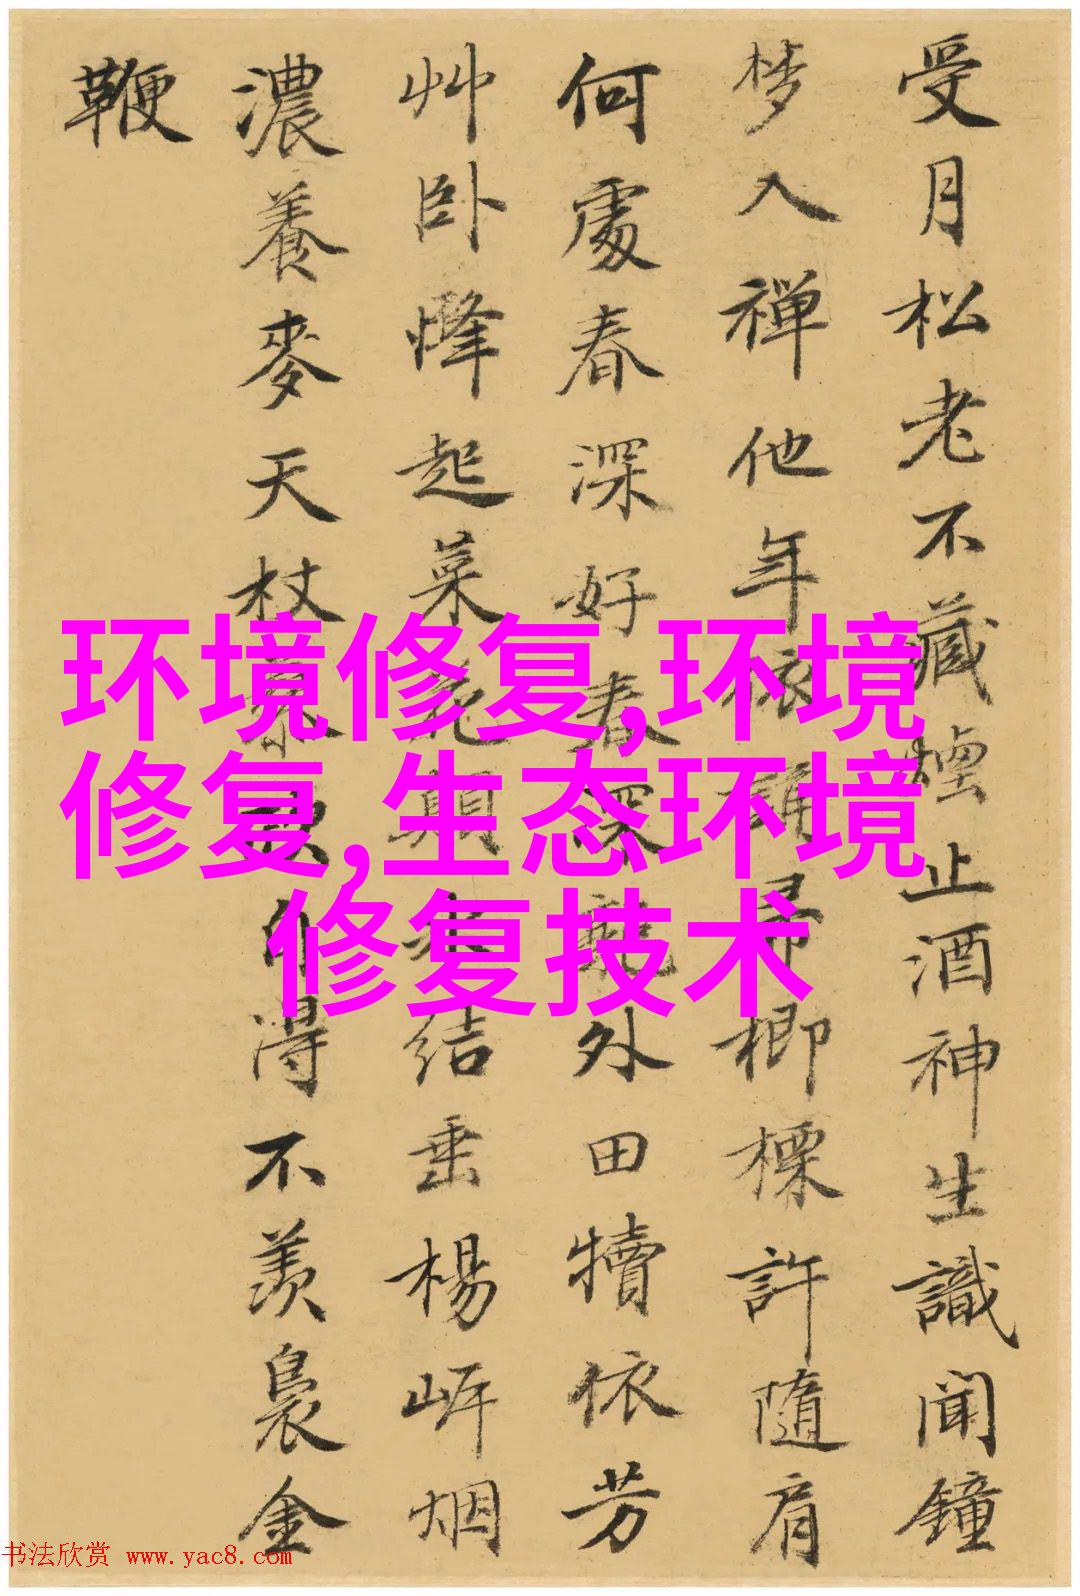 受月松老不藏壇止酒神生識聞鐘
梦入禅他年依誦帚楖標許隨肩
何處春深好春深外田犢依芳
艸卧烽起菜花顛結垂楊岍烟
濃養麥天杖得不羨裊金
鞭
环境修复,环境
修复,生态环境
修复技术
书法欣赏 www.yac8.com